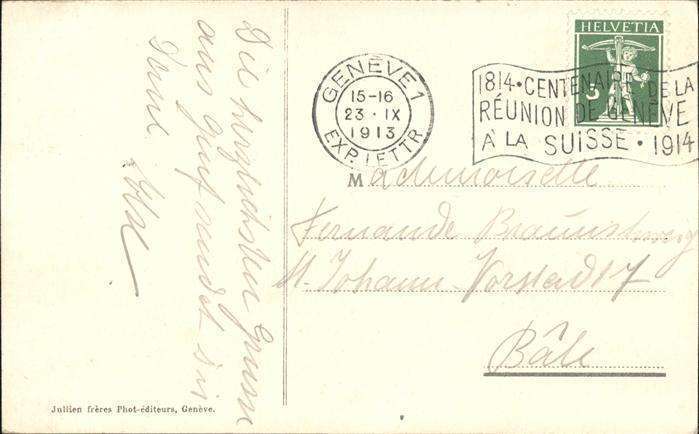 Die herzlichsten Grüsse
aus Genf sendet dir
Deine
HELVETIA
5
GENÈVE 1
15-16
23 · IX
1913
EXP. LETTR.
1814 · CENTENAIRE DE LA
RÉUNION DE GENÈVE
À LA SUISSE · 1914
Mademoiselle
Fernande Braunschweig
St. Johann-Vorstadt 7
Bâle
Jullien frères Phot-éditeurs, Genève.